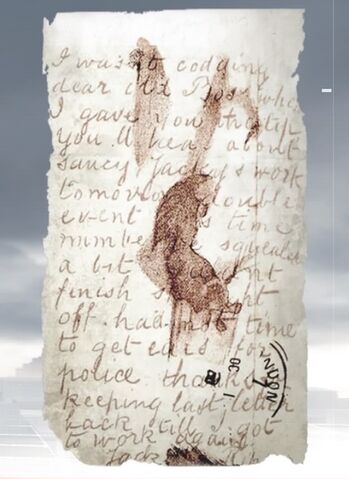 I wasnt codding
dear old Boss when
I gave you the tip
you'll hear about
saucy Jackys work
tomorrow double
event time
number squealed
a bit
finish
off. had not time
to get ears for
police thanks
keeping last letter
back till I got
to work again
Jack
30